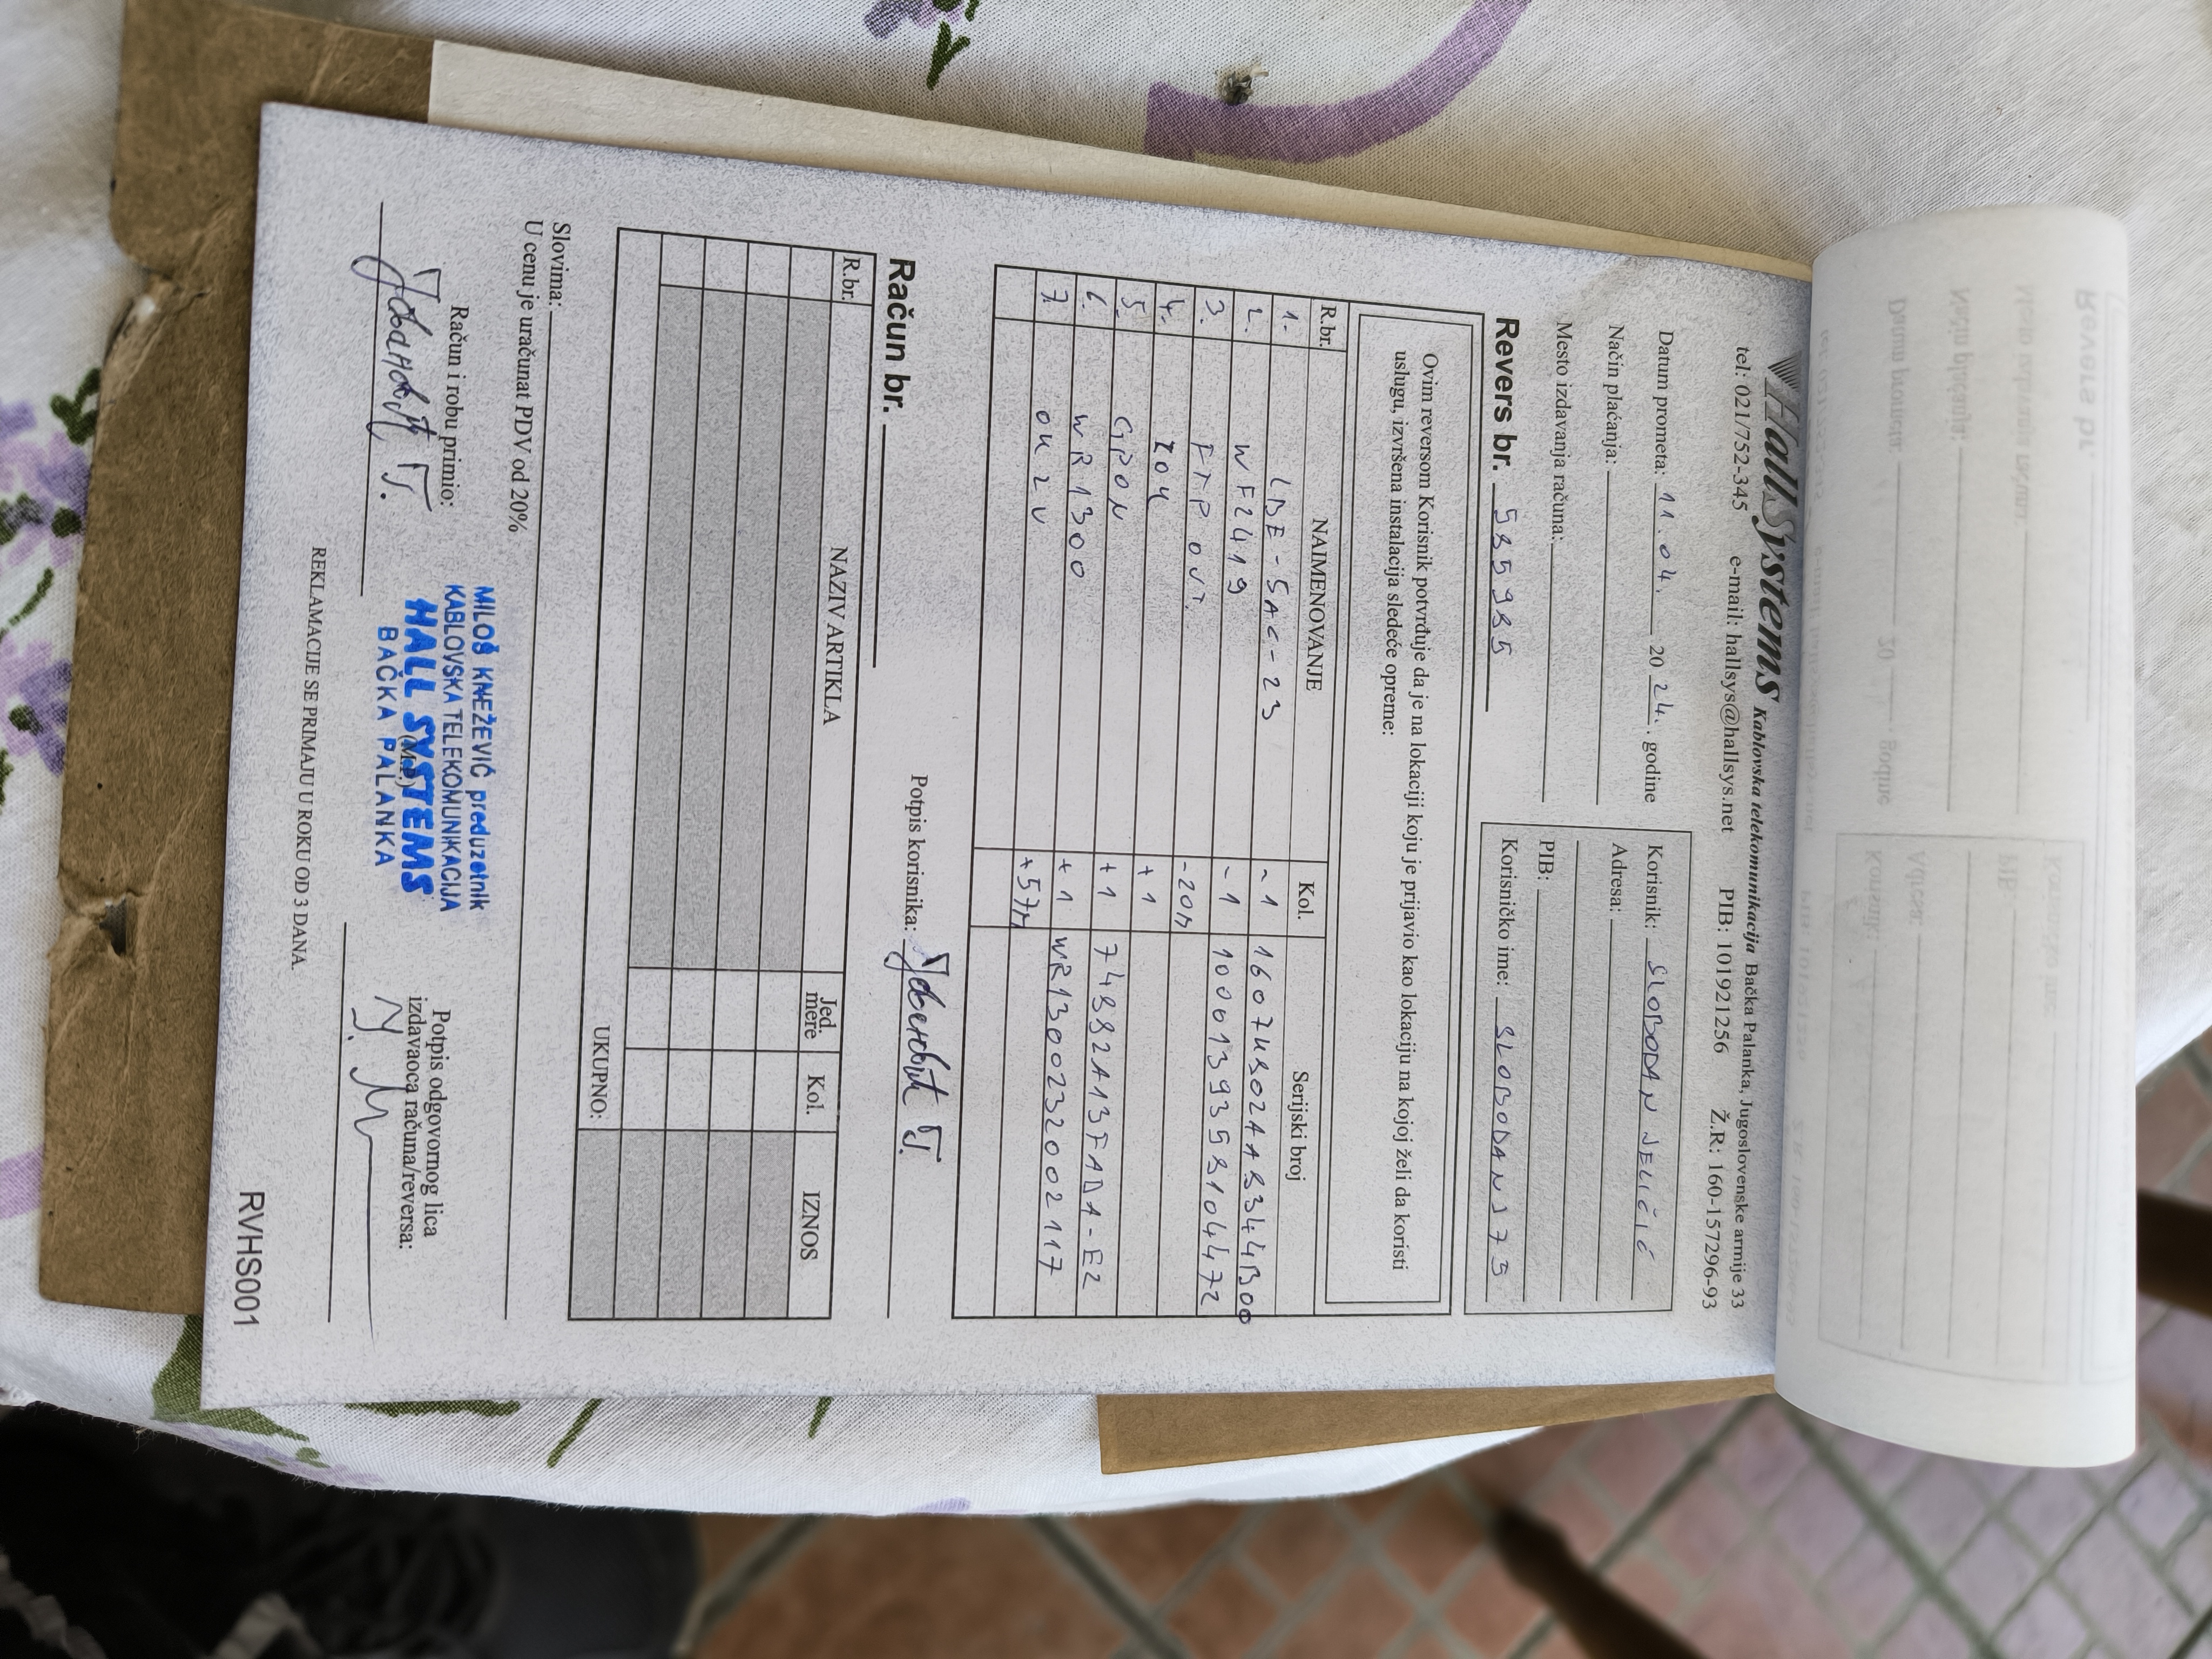 HallSystems Kablovska telekomunikacija Bačka Palanka, Jugoslovenske armije 33
tel: 021/752-345 e-mail: hallsys@hallsys.net PIB: 101921256 Ž.R: 160-157296-93
Datum prometa: 11.04. 20 24. godine
Način plaćanja:
Mesto izdavanja računa:
Korisnik: SLOBODAN JELIČIĆ
Adresa:
PIB:
Korisničko ime: SLOBODANJ75
Revers br. 5359985
Ovim reversom Korisnik potvrđuje da je na lokaciji koju je prijavio kao lokaciju na kojoj želi da koristi
uslugu, izvršena instalacija sledeće opreme:
R.br. NAIMENOVANJE Kol. Serijski broj
1. LBE-5AC-23 -1
2. WF2419 -1
3. FTP OUT. -20m
4. ZOK +1
5. GPON +1
6. WR1300 +1 WR13002320002117
7. OK 2V +57m
Potpis korisnika:
Račun br.
R.br. NAZIV ARTIKLA Jed. mere Kol. IZNOS
UKUPNO:
Slovima:
U cenu je uračunat PDV od 20%
Račun i robu primio:
MILOŠ KNEŽEVIĆ preduzetnik
KABLOVSKA TELEKOMUNIKACIJA
HALL SYSTEMS
BAČKA PALANKA
(M.P.)
Potpis odgovornog lica
izdavaoca računa/reversa:
REKLAMACIJE SE PRIMAJU U ROKU OD 3 DANA.
RVHS001